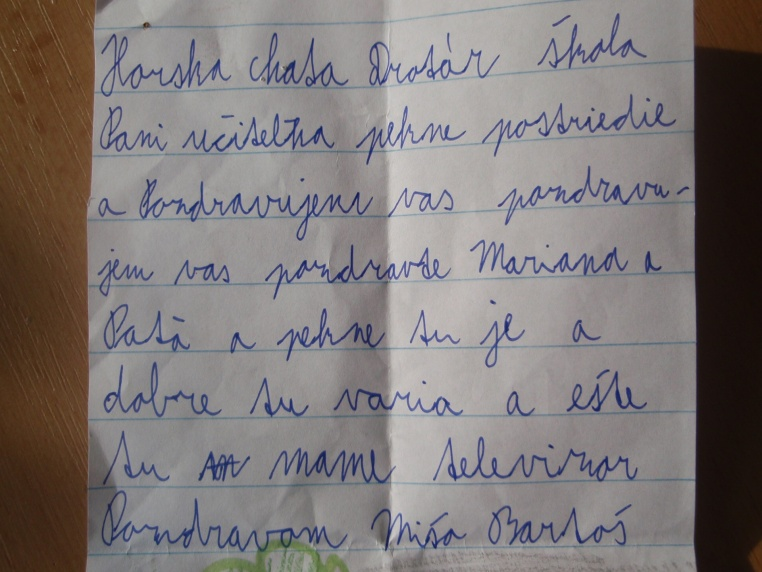 Horska chata Drotár škola
Pani učitelka pekne postriedie
a Pozdravujem vas pozdravu-
jem vas pozdravte Mariana a
Paťa a pekne tu je a
dobre tu varia a ešte
tu mame televizor
Pozdravom Mišo Bartoš